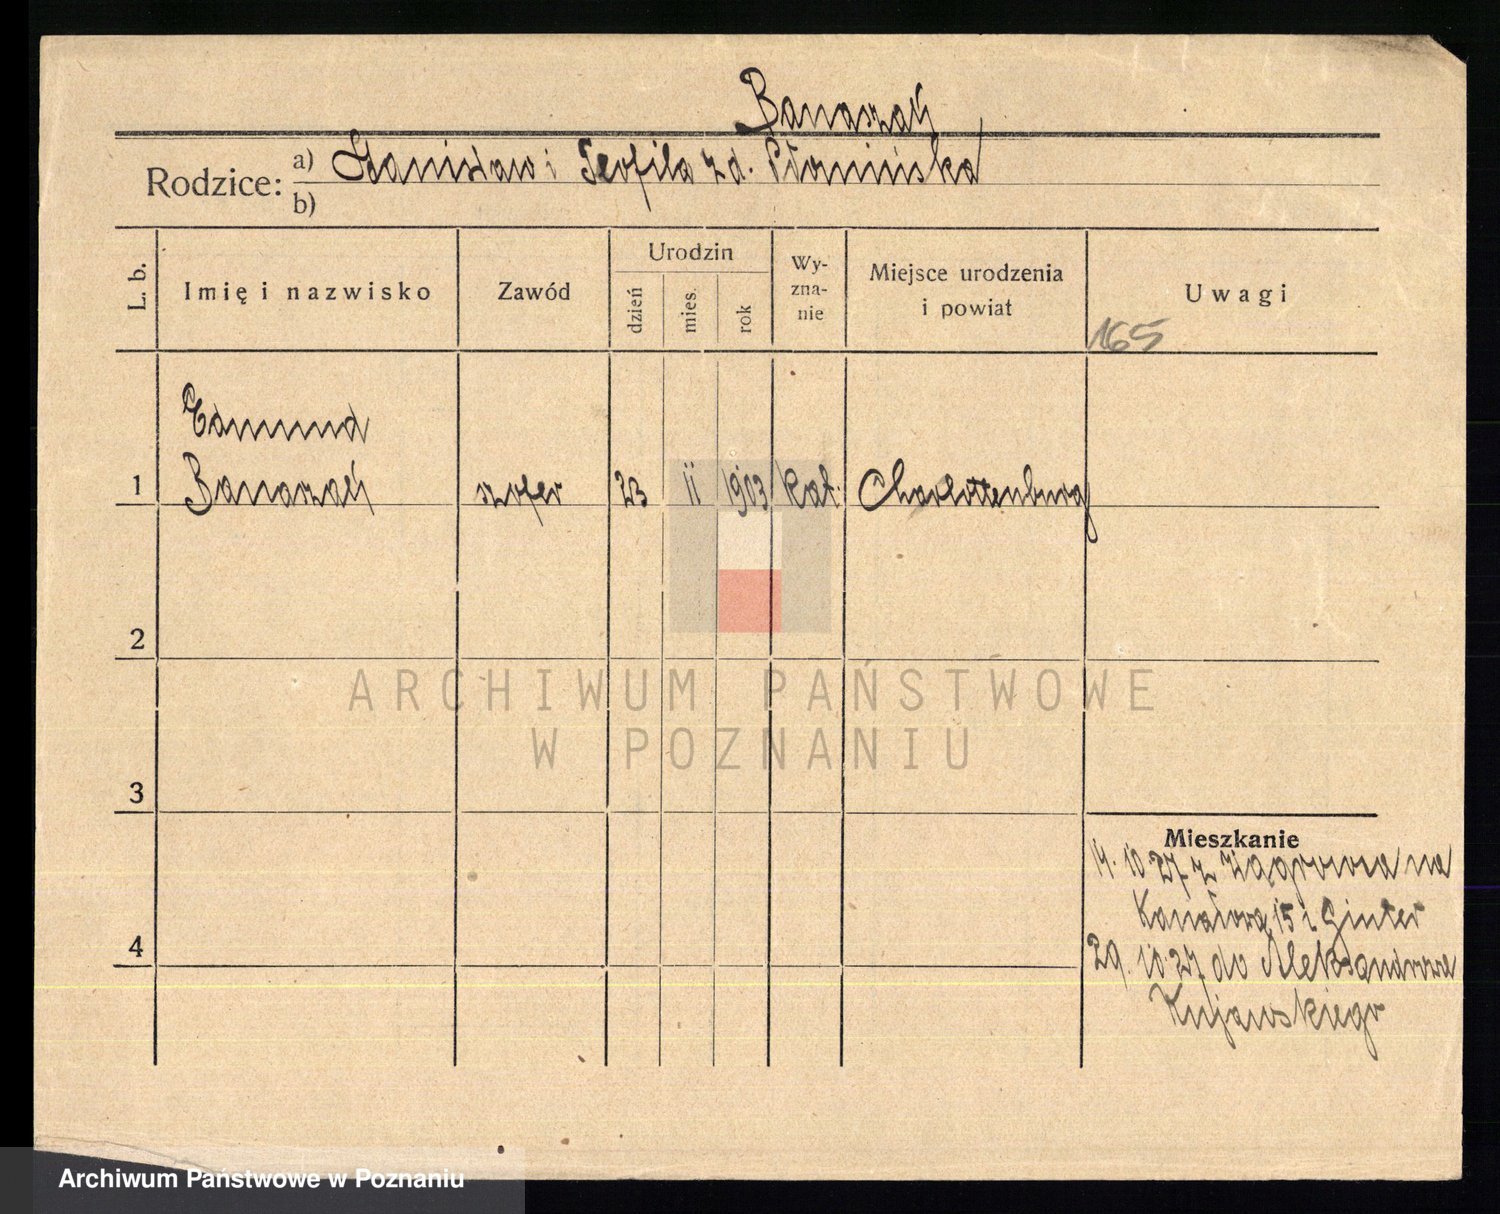 Banaszak
Rodzice: a) Stanisław i Teofila z d. Płomińska
b)
L. b. Imię i nazwisko Zawód Urodzin dzień mies. rok Wy-zna-nie Miejsce urodzenia i powiat Uwagi
165
Edmund
1 Banaszak szofer 23 II 1903 kat. Charlottenburg
2
ARCHIWUM PAŃSTWOWE
W POZNANIU
3
Mieszkanie
14. 10. 27 z Zagórowa na
Kanałową 15 i Ginter
4
29. 10. 27 do Aleksandrowa
Kujawskiego
Archiwum Państwowe w Poznaniu